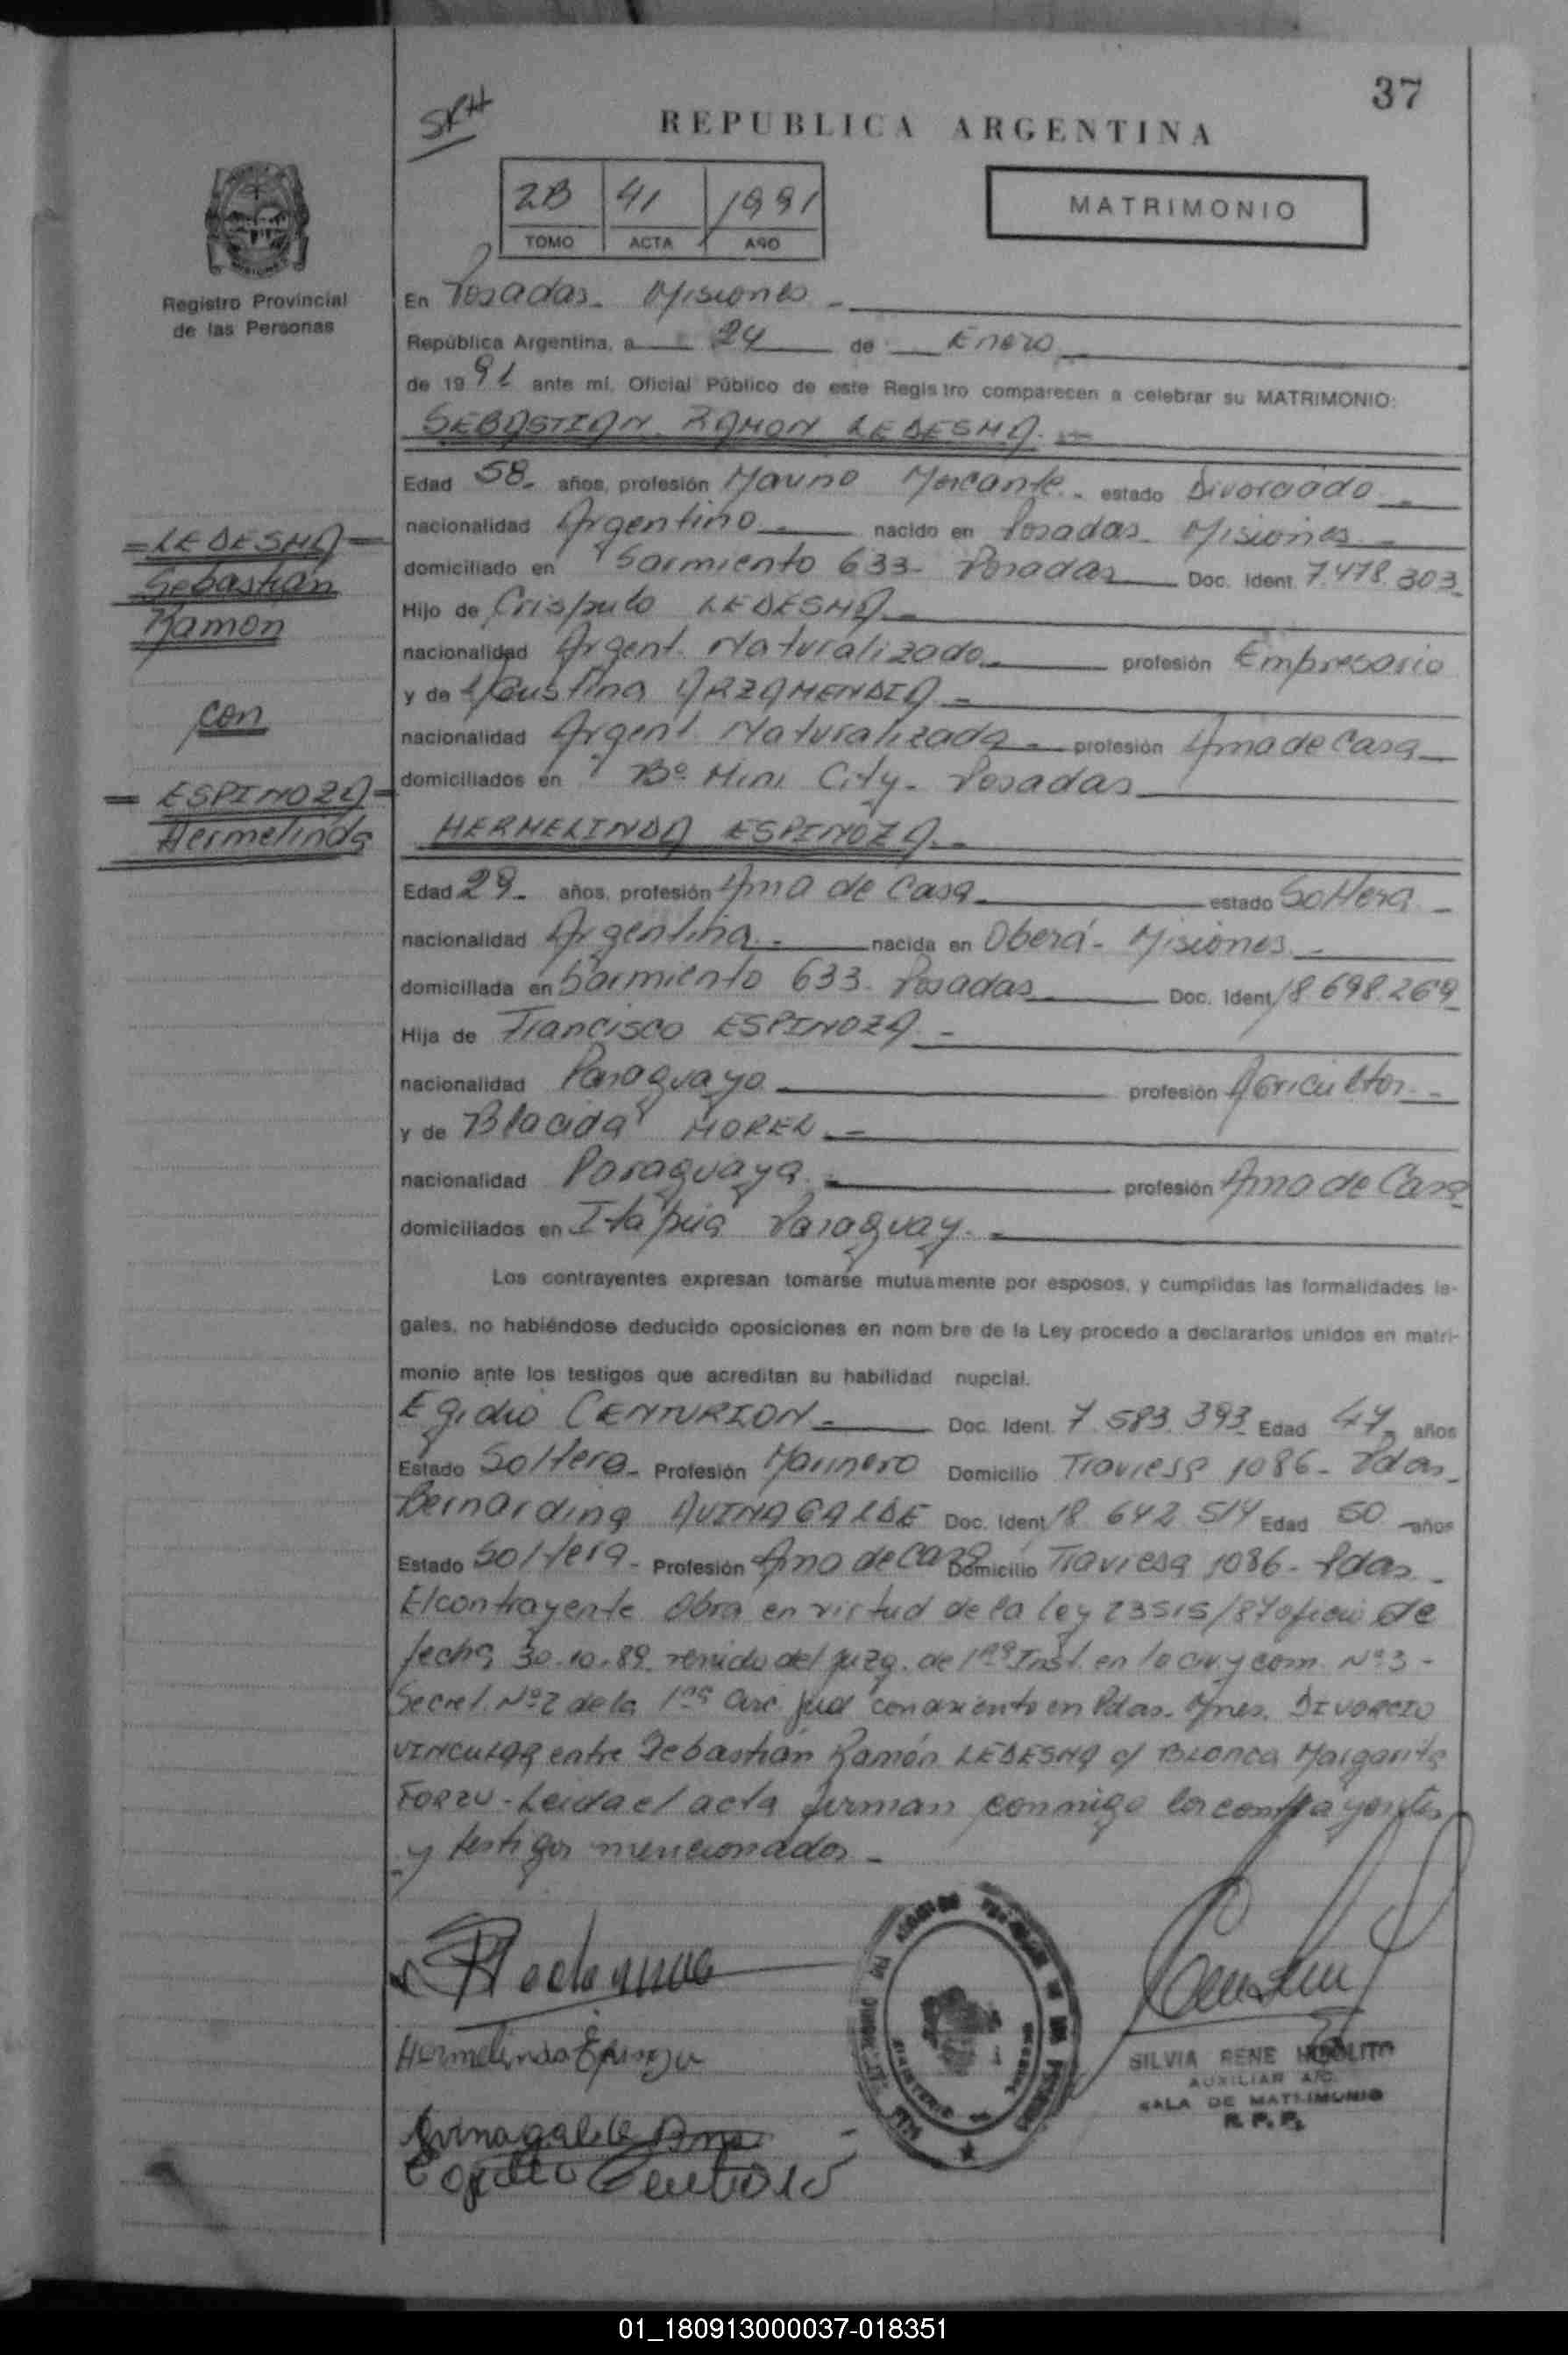 37
SRH
REPUBLICA ARGENTINA
2B 41 1991
TOMO ACTA AÑO
MATRIMONIO
Registro Provincial
de las Personas
En Posadas - Misiones -
República Argentina, a 24 de Enero
de 1991 ante mí, Oficial Público de este Registro comparecen a celebrar su MATRIMONIO:
SEBASTIAN RAMON LEDESMA. -
Edad 58 - años, profesión Marino Mercante - estado Divorciado -
nacionalidad Argentino - nacido en Posadas - Misiones -
domiciliado en Sarmiento 633 - Posadas Doc. Ident. 7.478.303
Hijo de Crispulo LEDESMA -
nacionalidad Argent. Naturalizado - profesión Empresario
y de Faustina ARZAMENDIA -
nacionalidad Argent. Naturalizada - profesión Ama de Casa
domiciliados en Bº Mini City - Posadas
= LEDESMA =
Sebastián
Ramon
con
= ESPINOZA =
Hermelinda
HERMELINDA ESPINOZA. -
Edad 29 - años, profesión Ama de Casa estado Soltera -
nacionalidad Argentina - nacida en Oberá - Misiones -
domiciliada en Sarmiento 633 - Posadas Doc. Ident. 18.698.269
Hija de Francisco ESPINOZA -
nacionalidad Paraguayo profesión Agricultor -
y de Blacida MOREL -
nacionalidad Paraguaya - profesión Ama de Casa
domiciliados en Itapúa Paraguay. -
Los contrayentes expresan tomarse mutuamente por esposos, y cumplidas las formalidades le-
gales, no habiéndose deducido oposiciones en nombre de la Ley procedo a declararlos unidos en matri-
monio ante los testigos que acreditan su habilidad nupcial.
Egidio CENTURION - Doc. Ident. 7.583.393 Edad 47 - años
Estado Soltero - Profesión Marinero Domicilio Traviesa 1086 - Pdas -
Bernardina AVINAGALDE Doc. Ident. 18.642.514 Edad 50 años
Estado Soltera - Profesión Ama de Casa Domicilio Traviesa 1086 - Pdas -
El contrayente Obra en virtud de la ley 23515/87 oficio de
fecha 30.10.89 venido del juzg. de 1ra Inst. en lo civ. y com. Nº 3 -
Secret. Nº 2 de la 1ra Circ. jud con asiento en Pdas. Mnes. DIVORCIO
VINCULAR entre Sebastián Ramón LEDESMA c/ BLANCA Margarita
- Leida el acta firman conmigo los contrayentes
y testigos mencionados -
Hermelinda Espinoza
Avinagalde
Egidio Centurion
SILVIA RENE HIPOLITO
AUXILIAR A/C.
SALA DE MATRIMONIO
R. P. P.
01_180913000037-018351